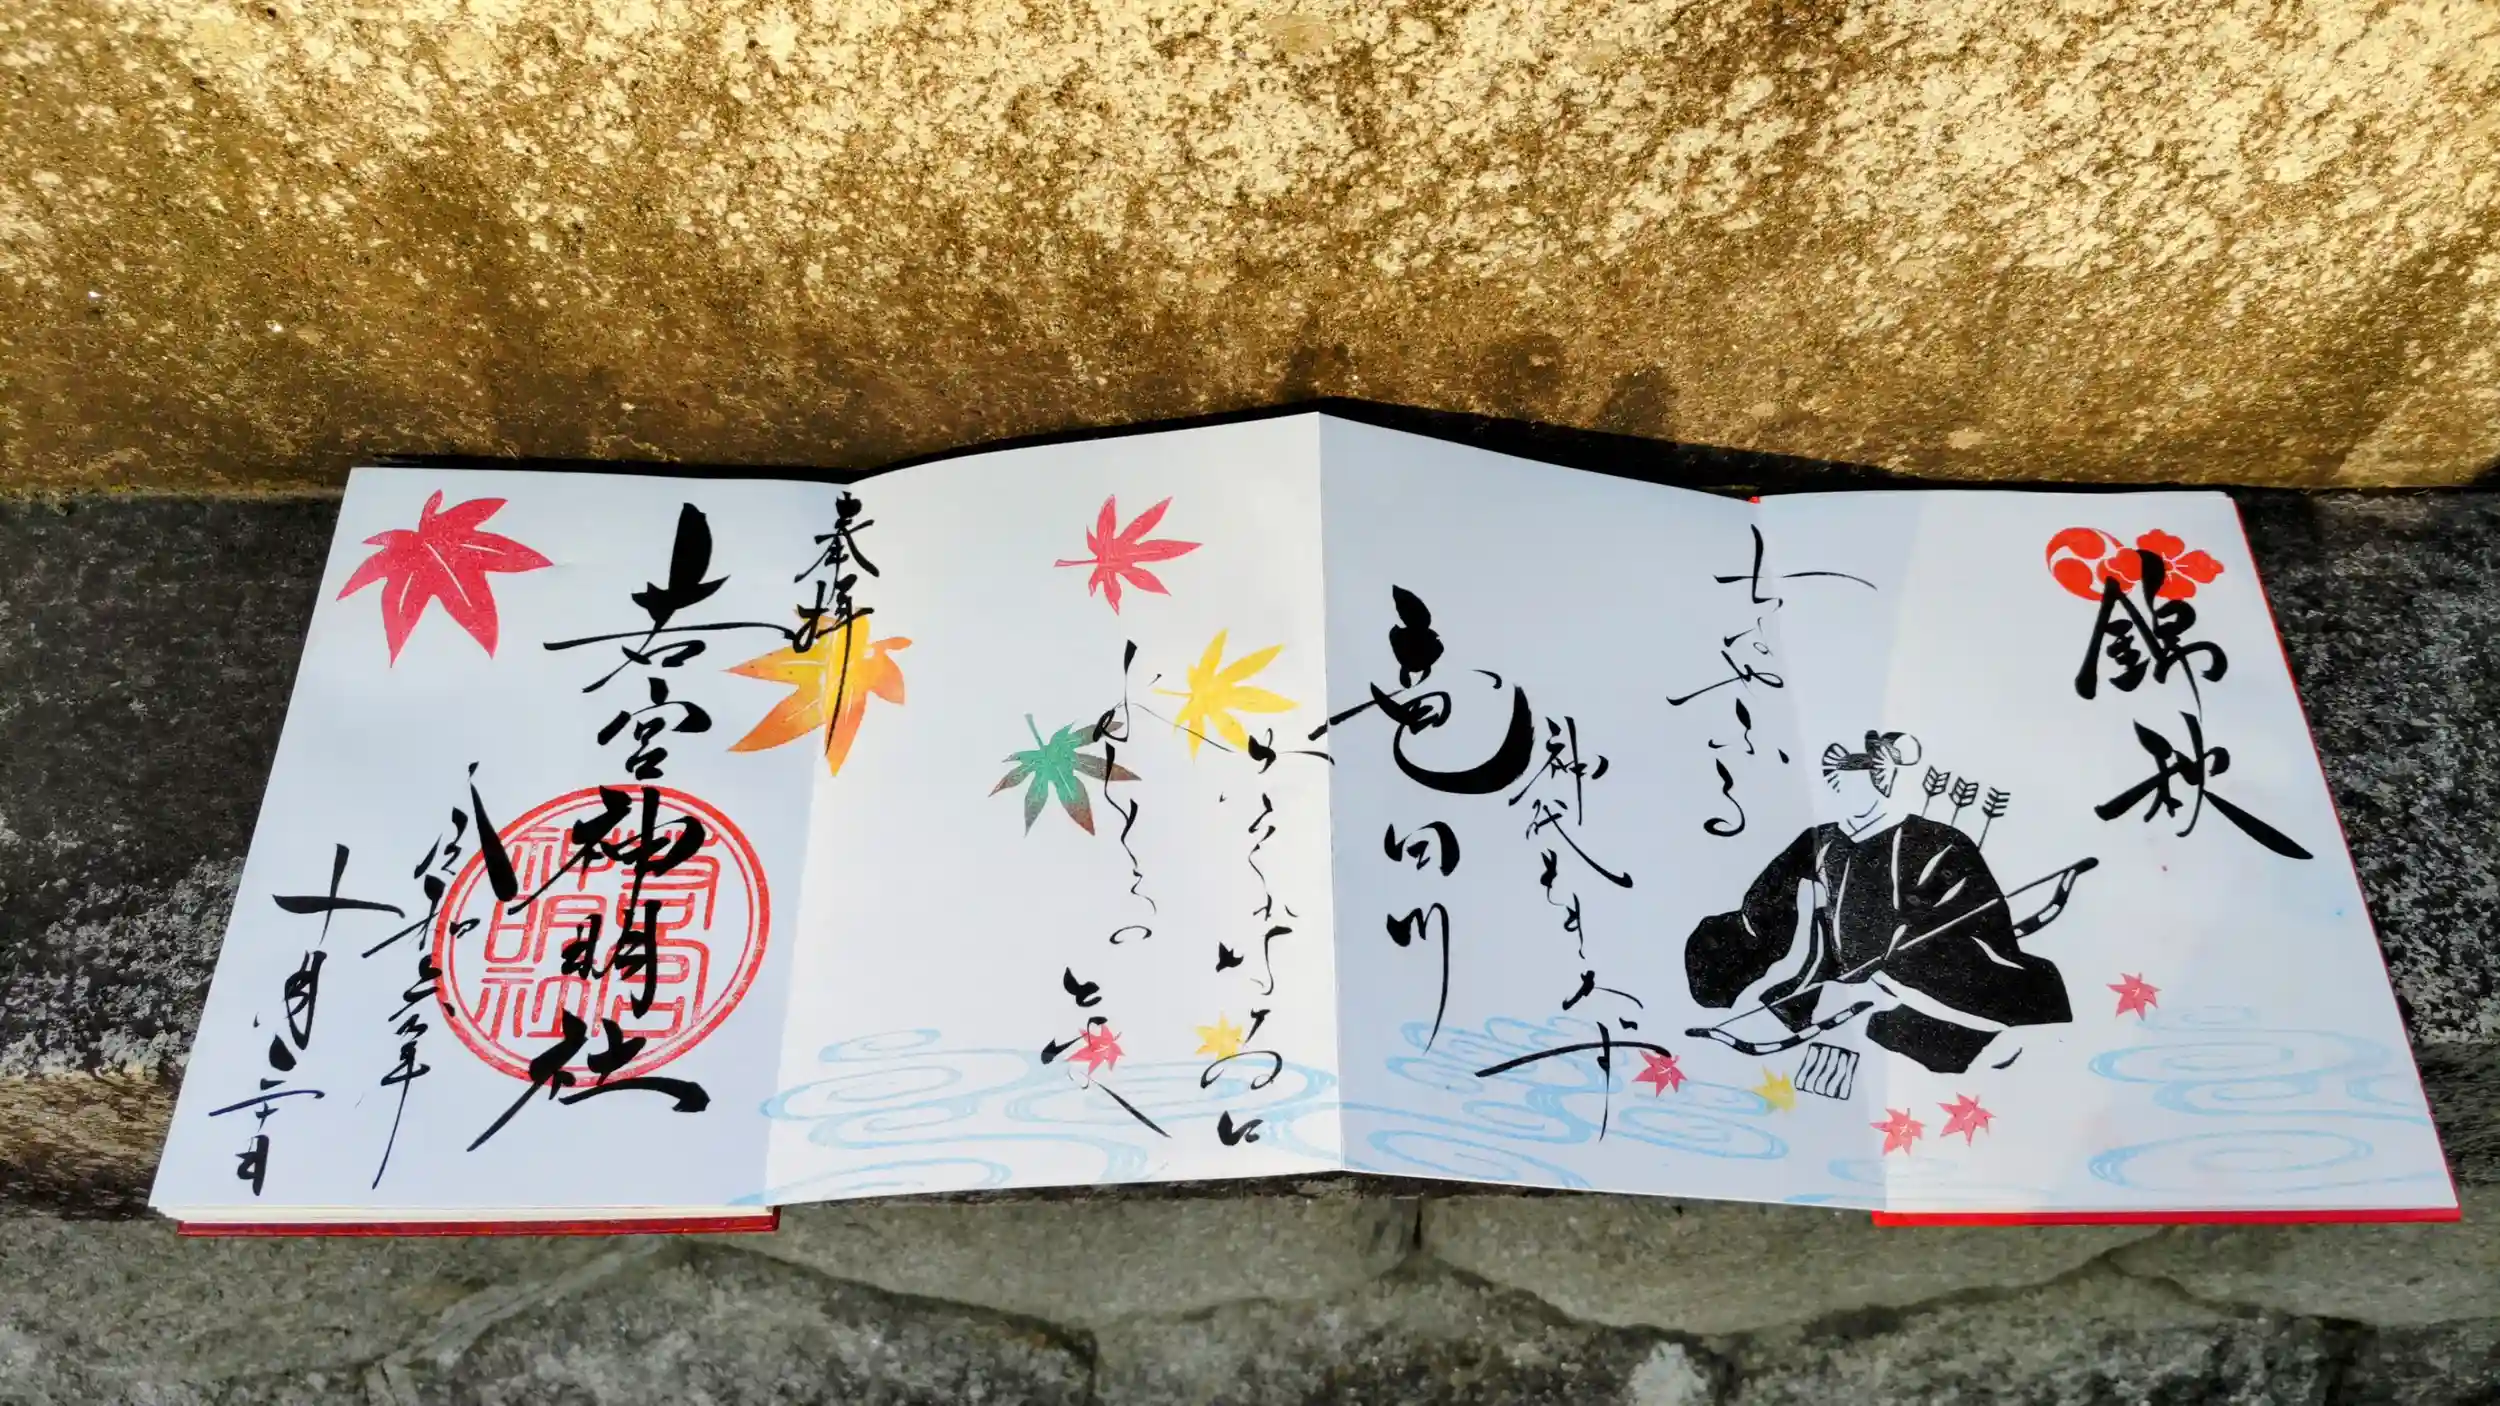 錦秋
ちはやふる
神代もきかす
竜田川
からくれなゐに
水くくる
とは
奉拝
若宮神明社
若宮
神明社
令和六年
十月二十日